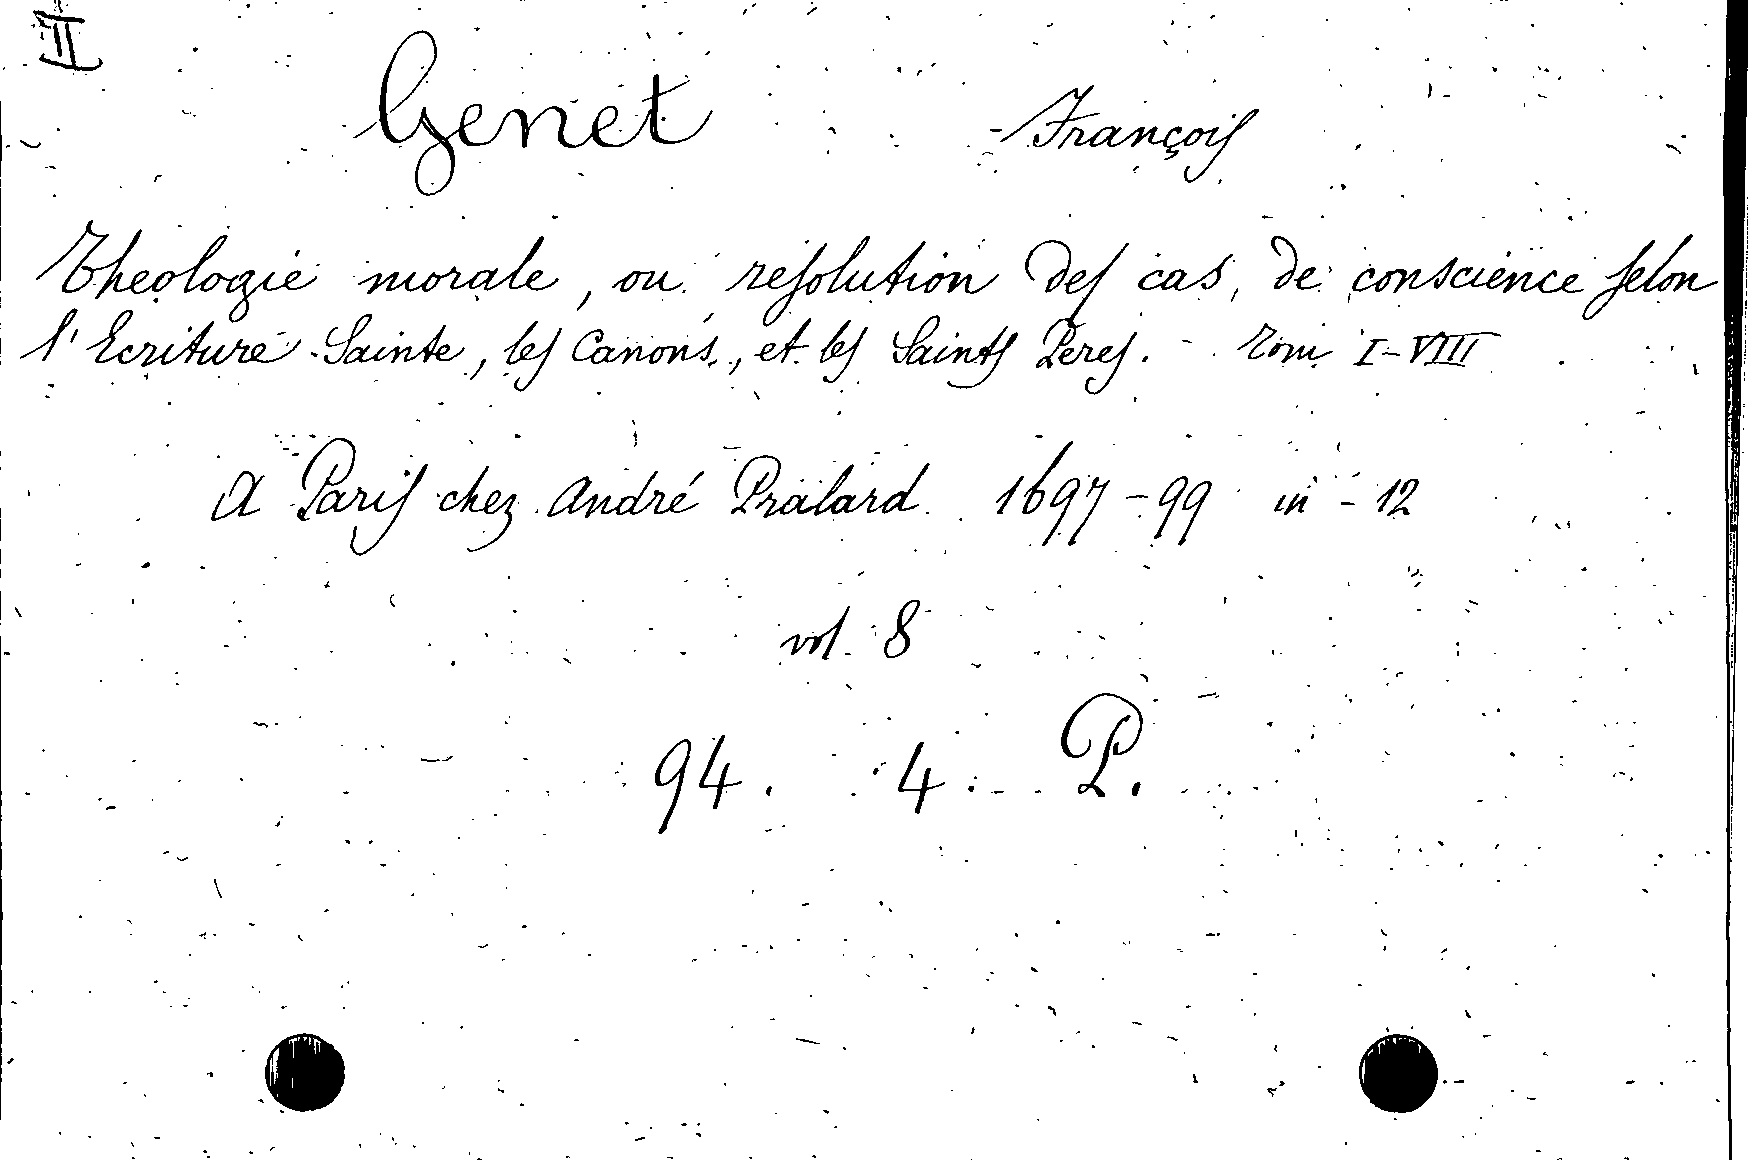 II
Genet François
Theologie morale, ou resolution des cas, de conscience selon
l'Ecriture Sainte, les Canons, et les Saints Peres. - Tom I-VIII
A Paris chez André Pralard 1697-99 in-12
vol. 8
94. 4. P.